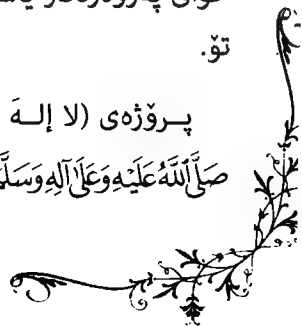 تۆ.
پـرۆژەی (لا إلـهَ
صَلَّى اللَّهُ عَلَيْهِ وَعَلَىٰ آلِهِ وَسَلَّمَ